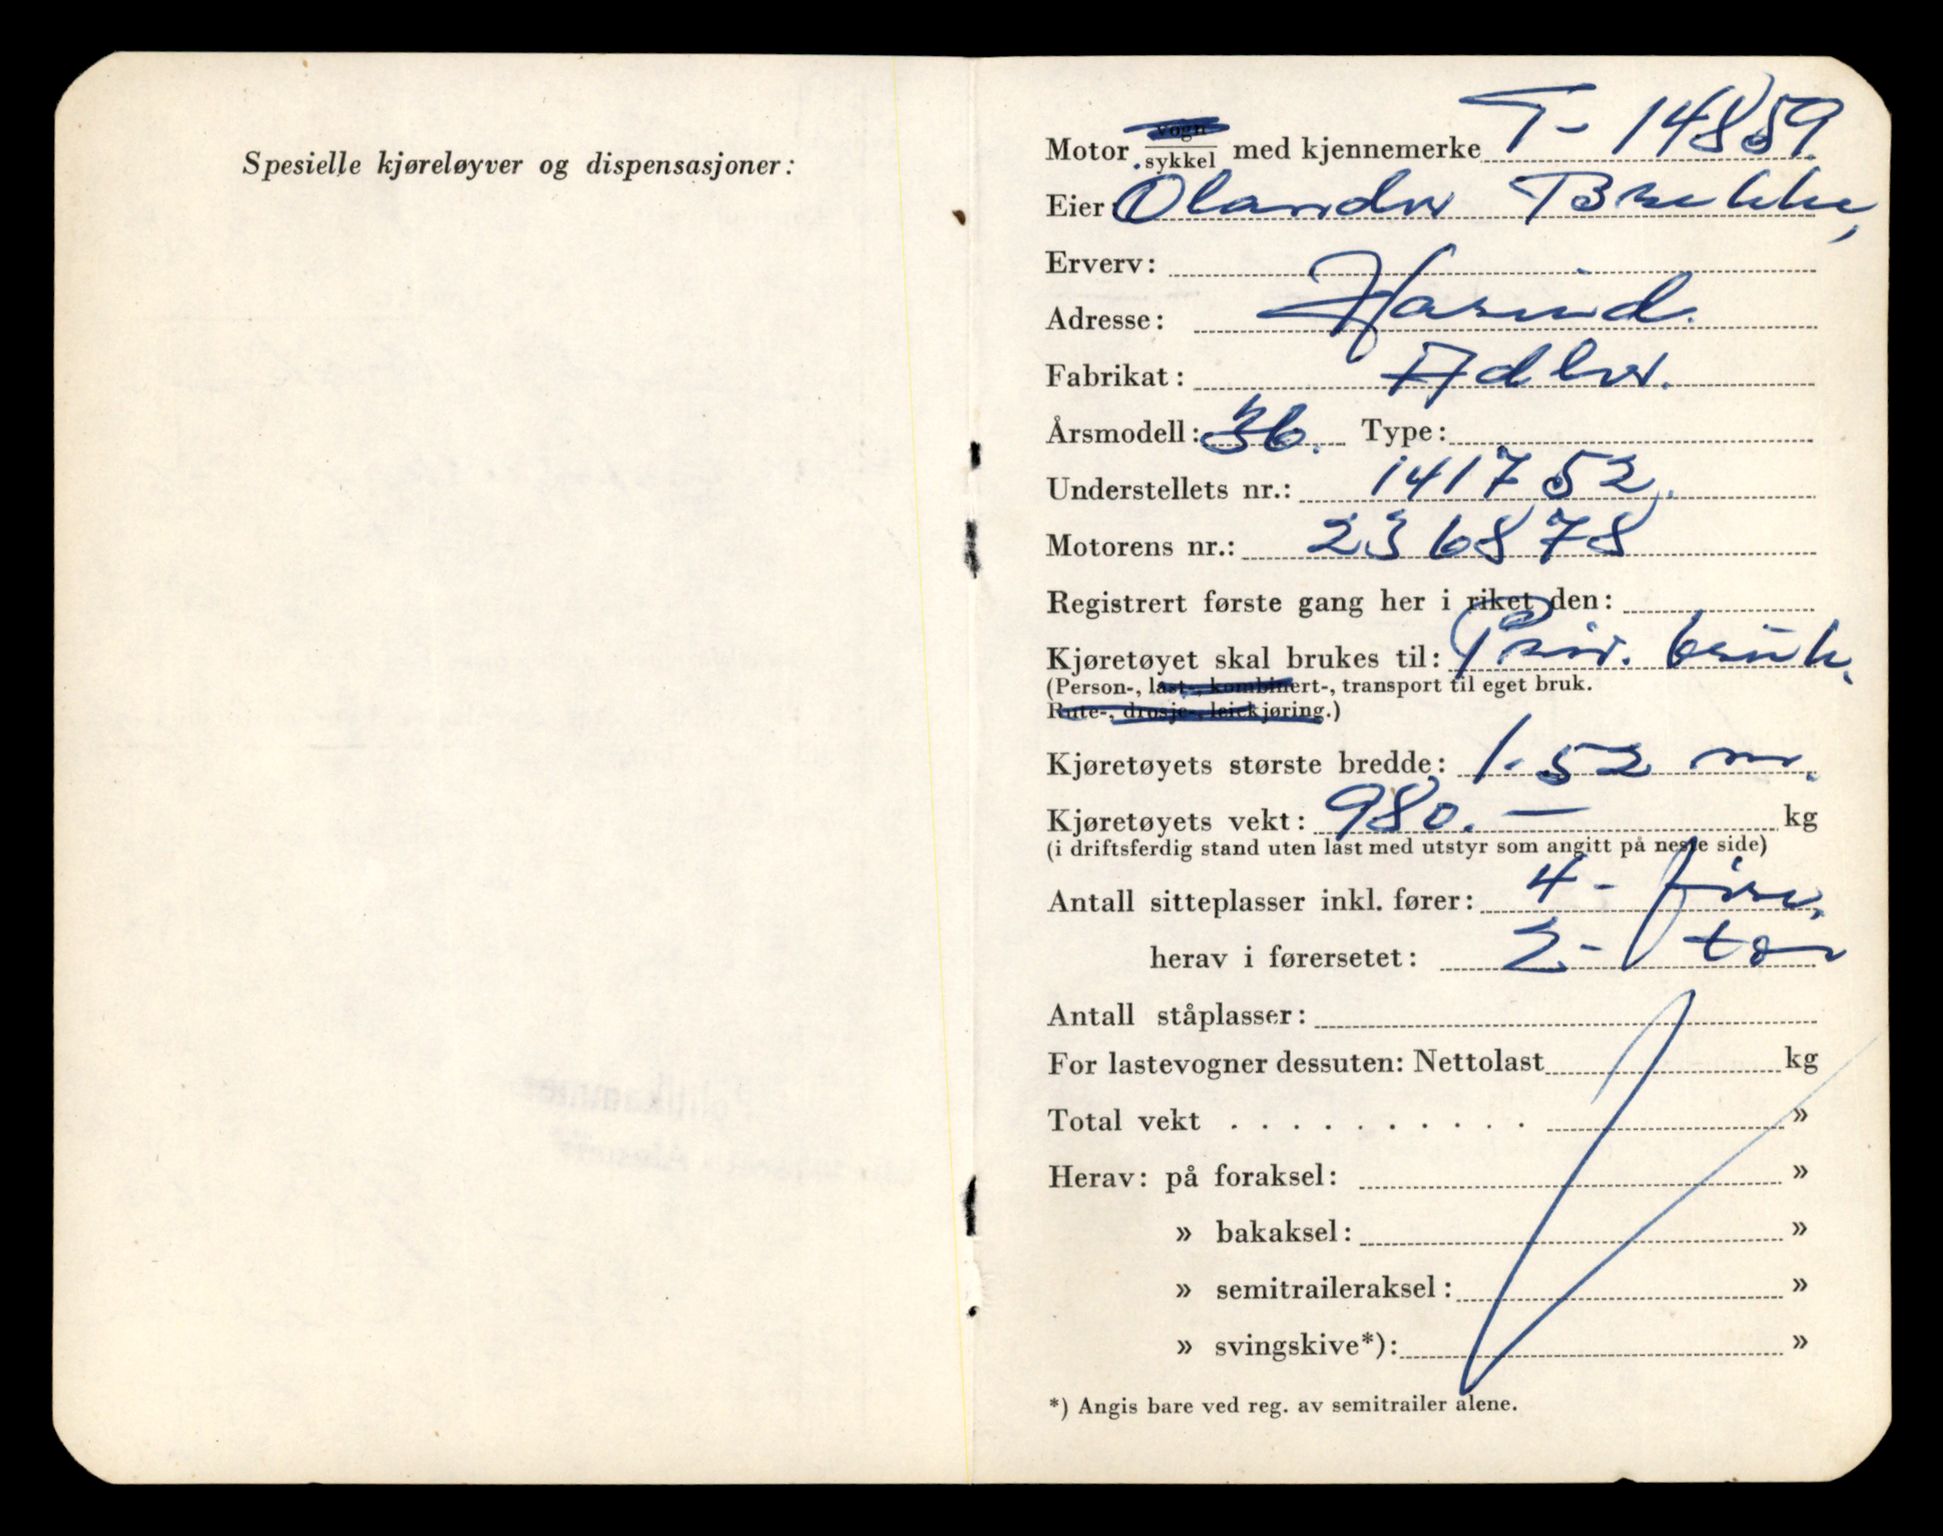 Spesielle kjøreløyver og dispensasjoner:
Motor vogn/sykkel med kjennemerke T- 14859
Eier: Olander Brekke,
Erverv:
Adresse: Hareid.
Fabrikat: Adler.
Årsmodell: 36. Type:
Understellets nr.: 141752.
Motorens nr.: 236878
Registrert første gang her i riket den:
Kjøretøyet skal brukes til: Priv. bruk.
(Person-, last-, kombinert-, transport til eget bruk.
Rute-, drosje-, leiekjøring.)
Kjøretøyets største bredde: 1.52 m.
Kjøretøyets vekt: 980. — kg
(i driftsferdig stand uten last med utstyr som angitt på neste side)
Antall sitteplasser inkl. fører: 4 - fire.
herav i førersetet: 2 - to
Antall ståplasser:
For lastevogner dessuten: Nettolast kg
Total vekt . . . . . . . . . . »
Herav: på foraksel: »
» bakaksel: »
» semitraileraksel: »
» svingskive*): »
*) Angis bare ved reg. av semitrailer alene.